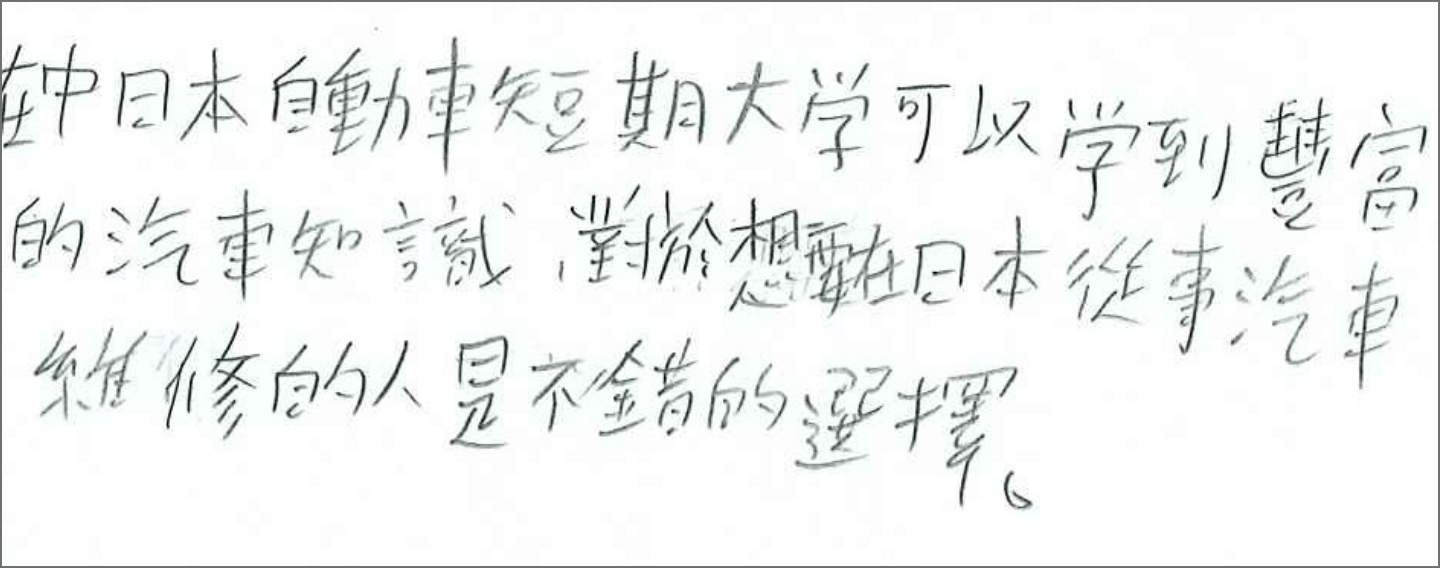 在中日本自動車短期大学可以学到豐富
的汽車知識,對於想要在日本從事汽車
維修的人是不錯的選擇。